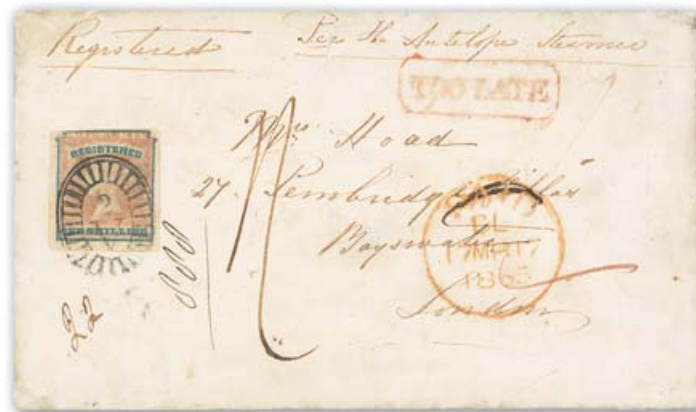 Registered Per the Antelope Steamer
TOO LATE
REGISTERED
ONE SHILLING
Mrs Hoad
27. Pembridge Villas
Bayswater
London
17 MR 17
186
22